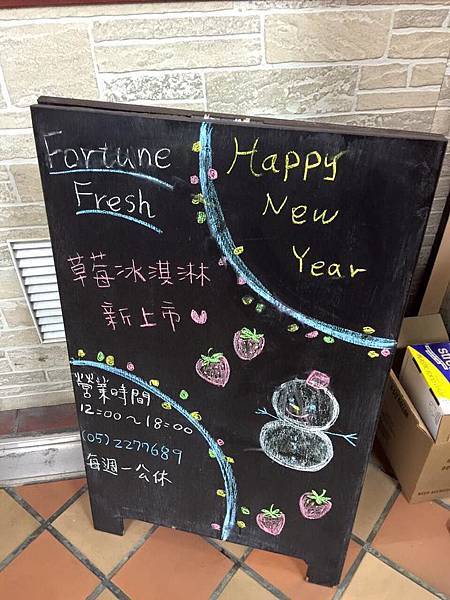 Fortune
Fresh
Happy
New
Year
草莓冰淇淋
新上市
營業時間
12:00~18:00
(05)2277689
每週一公休